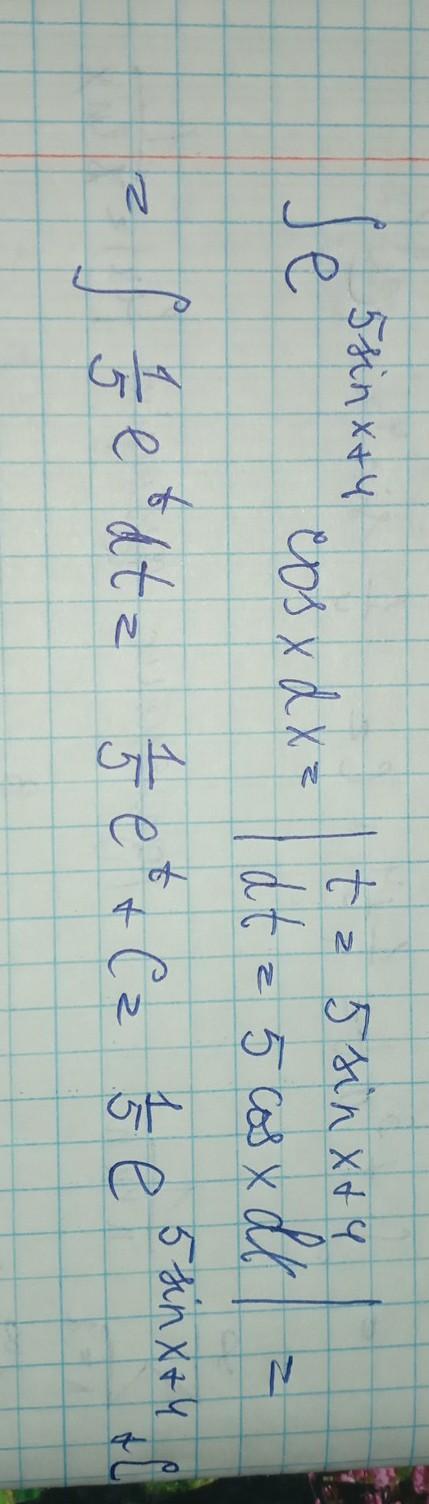 ∫ e^{5 sin x + 4} cos x dx = | t = 5 sin x + 4
dt = 5 cos x dx | =
= ∫ \frac{1}{5} e^t dt = \frac{1}{5} e^t + C = \frac{1}{5} e^{5 sin x + 4} + C